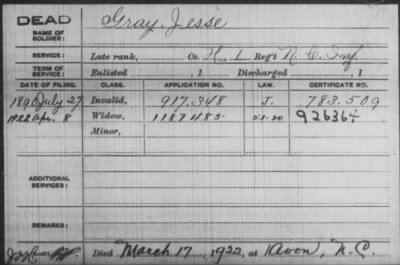 DEAD
NAME OF SOLDIER: Gray, Jesse
SERVICE: Late rank, Co. H, 1 Reg't N.C. Inf
TERM OF SERVICE: Enlisted , 1 Discharged , 1
DATE OF FILING. CLASS. APPLICATION NO. LAW. CERTIFICATE NO.
1890 July 27 Invalid, 917.348 J. 783.509
1922 Apr. 8 Widow, 1187485 926364
Minor,
ADDITIONAL SERVICES:
REMARKS:
Died March 17, 1922, at Avon, N.C.